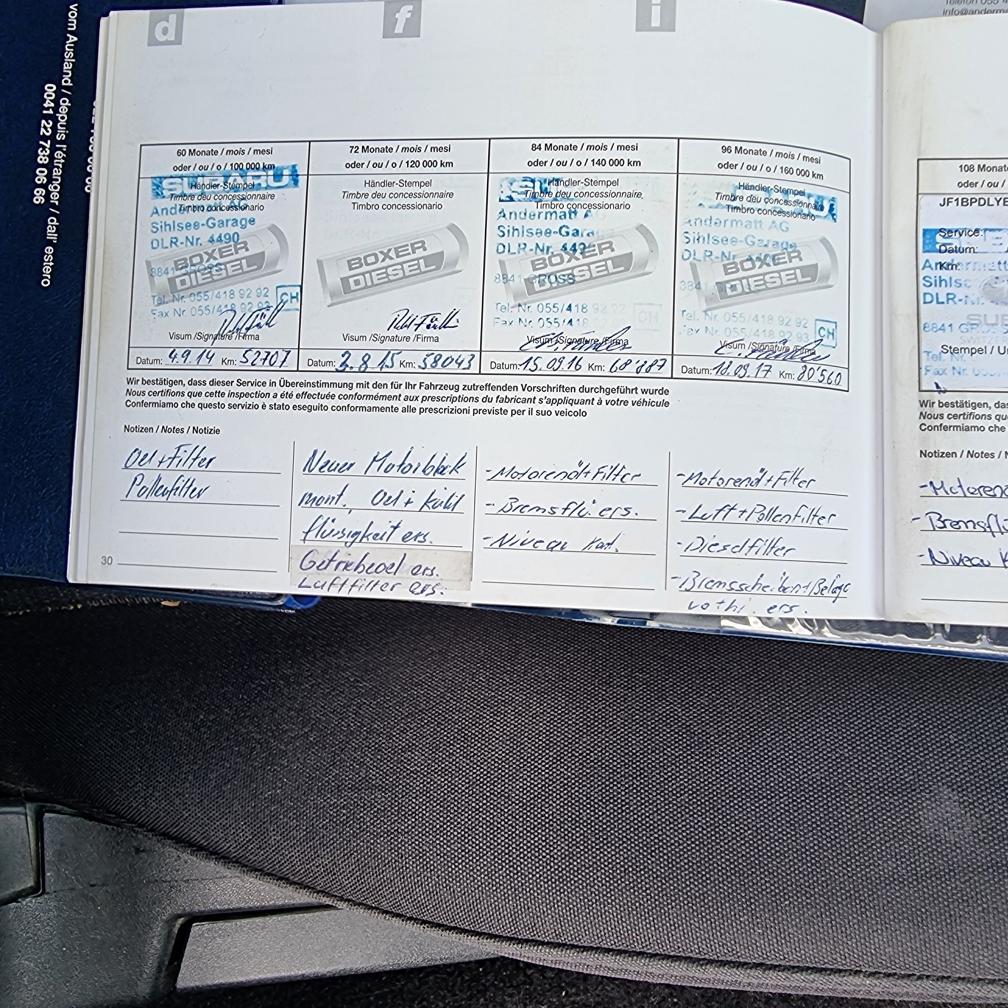 vom Ausland / depuis l'étranger / dall' estero
0041 22 738 06 66
d
f
i
60 Monate / mois / mesi
oder / ou / o / 100 000 km
SUBARU
Händler-Stempel
Timbre deu concessionnaire
Timbro concessionario
Sihlsee-Garage
DLR-Nr. 4490
BOXER
DIESEL
Tel. Nr. 055/418 92 92
Fax Nr. 055/418
CH
Visum /Signature /Firma
Datum: 4.9.14 Km: 52707
72 Monate / mois / mesi
oder / ou / o / 120 000 km
Händler-Stempel
Timbre deu concessionnaire
Timbro concessionario
BOXER
DIESEL
Visum /Signature /Firma
Datum: 2.8.15 Km: 58043
84 Monate / mois / mesi
oder / ou / o / 140 000 km
Händler-Stempel
Timbre deu concessionnaire
Timbro concessionario
Andermatt
Sihlsee-Garage
DLR-Nr. 449
BOXER
DIESEL
8841 GROSS
Tel. Nr. 055/418 92 92
Fax Nr. 055/418
Visum/Signature/Firma
Datum: 15.09.16 Km: 68'887
96 Monate / mois / mesi
oder / ou / o / 160 000 km
Händler-Stempel
Timbre deu concessionnaire
Timbro concessionario
Andermatt AG
Sihlsee-Garage
DLR-Nr.
BOXER
DIESEL
Tel. Nr. 055/418 92 92
CH
Visum /Signature /Firma
Datum: 18.09.17 Km: 80'560
Wir bestätigen, dass dieser Service in Übereinstimmung mit den für Ihr Fahrzeug zutreffenden Vorschriften durchgeführt wurde
Nous certifions que cette inspection a été effectuée conformément aux prescriptions du fabricant s'appliquant à votre véhicule
Confermiamo che questo servizio è stato eseguito conformamente alle prescrizioni previste per il suo veicolo
Notizen / Notes / Notizie
Oel+Filter
Pollenfilter
Neuer Motorblock
mont. Oel + Kühl
flüssigkeit ers.
Getriebeoel ers.
Luftfilter ers.
-Motorenöl+Filter
-Bremsflü. ers.
-Niveau Kont.
-Motorenöl+Filter
-Luft+Pollenfilter
-Dieselfilter
-Bremsscheiben+Beläge
vo+hi. ers.
30
108 Monat
oder / ou /
JF1BPDLYE
Service:
Datum:
Km:
Andermatt
Sihls
DLR-N
8841
Stempel / U
Wir bestätigen, das
Nous certifions qu
Confermiamo che
Notizen / Notes /
-Motoren
-Bremsflü
-Niveau K